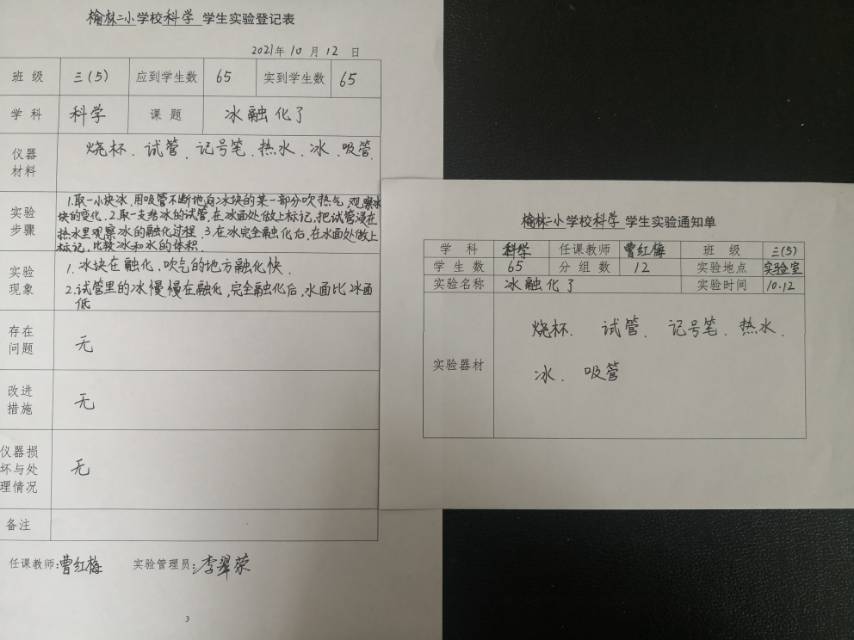 榆林二小学校科学学生实验登记表
2021年10月12日
班级 三(5) 应到学生数 65 实到学生数 65
学科 科学 课题 冰融化了
仪器材料 烧杯、试管、记号笔、热水、冰、吸管
实验步骤
1.取一小块冰,用吸管不断地向冰块的某一部分吹热气,观察冰
块的变化.2.取一支有冰的试管,在冰面处做上标记,把试管浸在
热水里观察冰的融化过程.3.在冰完全融化后,在水面处做上
标记,比较冰和水的体积.
实验现象
1.冰块在融化,吹气的地方融化快.
2.试管里的冰慢慢在融化,完全融化后,水面比冰面
低
存在问题 无
改进措施 无
仪器损坏与处理情况 无
备注
任课教师:曹红梅 实验管理员:李翠荣
3
榆林二小学校科学学生实验通知单
学科 科学 任课教师 曹红梅 班级 三(5)
学生数 65 分组数 12 实验地点 实验室
实验名称 冰融化了 实验时间 10.12
实验器材
烧杯、试管、记号笔、热水、
冰、吸管